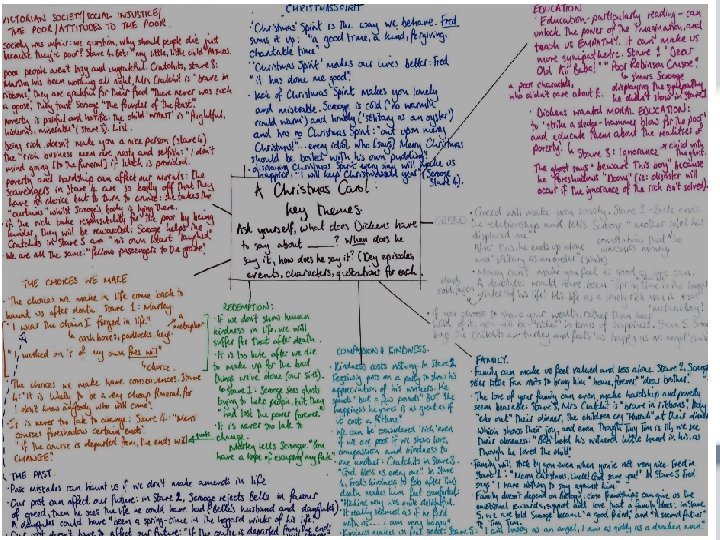 VICTORIAN SOCIETY/SOCIAL INJUSTICE/
THE POOR/ATTITUDES TO THE POOR
Society was unfair: we question, why should people die just
because they're poor? Stave 4. Bob: "my little, little child"
poor people aren't lazy and ungrateful. Cratchits, Stave 3:
Martha has been working all night, Mrs Cratchit is "brave in
ribbons". They are grateful for their food "There never was such
a goose". They toast Scrooge "The Founder of the Feast".
poverty is painful and horrific. The child 'Want' is "frightful,
(Stave 3).
being rich doesn't make you a nice person (Stave 4)
The "rich business men are nasty and selfish: "I don't
mind going [to the funeral] if lunch is provided.
poverty and hardship can affect our morals: The
in Stave 4 are so badly off that they
have no choice but to turn to crime: he takes the
"curtains" while Scrooge's body is lying there.
if the rich take responsibility for the poor by being
kinder, they will be rewarded: Scrooge helps the
Cratchits in Stave 5 and "his own heart laughed"
We are all the same: "fellow passengers to the grave"
CHRISTMAS SPIRIT
'Christmas' Spirit is the way we behave. Fred
sums it up: "a good time, a kind, forgiving,
charitable time"
'Christmas Spirit' makes our lives better: Fred
"it has done me good".
lack of Christmas Spirit makes you lonely
and miserable. Scrooge is cold ("no warmth
could warm) and lonely ("solitary as an oyster")
and has no Christmas Spirit: "out upon merry
Christmas!"... every idiot who [says] Merry Christmas
should be boiled with his own pudding".
Christmas Spirit every day will make us
happier: "I will keep Christmas all year" (Scrooge
Stave 4).
EDUCATION
Education - particularly reading - can
unlock the power of the imagination, and
teach us EMPATHY. It can make us
more sympathetic. Stave 2 "Dear
Old Ali Baba!" "Poor Robinson Crusoe!"
shows Scrooge
displaying the sympathy
he didn't show in Stave 1
a poor charitable,
who didn't care about
Dickens wanted MORAL EDUCATION:
to "strike a sledge-hammer blow for the poor"
and educate them about the realities of
poverty. Stave 3: Ignorance a child with
the ghost.
The ghost says "beware this boy" because
he foreshadows "Doom" (i.e. disaster will
occur if the ignorance of the rich isn't solved).
A Christmas Carol:
key themes.
Ask yourself, what does Dickens have
to say about ____? When does he
say it, how does he say it? (Key episodes,
events, characters, quotations for each.
GREED
Greed will make you lonely. Stave 2 - Belle ends
the relationship and tells Scrooge "another idol has
displaced me"
After this, he ends up alone
worships money
was "solitary as an oyster" (simile).
Money can't make you feel as good as
A daughter would have been "spring-time in the haggard
winter of his life". His life as a lonely rich man is
if you choose to share your wealth, rather than keep
hold of it, you will be "richer" in terms of happiness. Stave 5, Scrooge
the Cratchits a turkey and feels "as happy as an angel"
THE CHOICES WE MAKE
The choices we make in life come back to
haunt us after death. Stave 1: Marley
"I wear the chain I forged in life"
cash boxes, padlocks, keys
a metaphor
"I worked on it of my own free will"
choice.
The choices we make have consequences. Stave
4: "It is likely to be a very cheap funeral, for
I don't know anybody who will come".
It is never too late to change: Stave 4. "Men's
courses foreshadow certain ends"
"if the course is departed from, the ends will
CHANGE"
REDEMPTION:
If we don't show human
kindness in life, we will
suffer for that after death.
It is too late after we die
to make up for the bad
things we've done (our sins).
Stave 1: Scrooge sees ghosts
trying to help people, but they
"had lost the power forever".
It is never too late to
change.
Marley tells Scrooge "You
have a hope of escaping my fate"
COMPASSION & KINDNESS.
Kindness costs nothing. In Stave 2
Fezziwig puts on a party to show his
appreciation of his workers. He
spends "but a few pounds" But "the
happiness he gives is as great as if
it cost a fortune"
We can be considered 'rich' even
if we are poor if we show love,
compassion and kindness to
one another - Cratchits in Stave 3.
"God bless us every one". In Stave
4, Fred's kindness to Bob after Tim's
death makes him feel comforted.
"His kind way was quite delightful.
It really seemed as if he felt
with us"... "I am very happy"
FAMILY.
Family can make us feel valued and less alone. Stave 2, Scrooge
sees little Fan rush to bring him "home, forever" "dear brother".
The love of your family can even make hardship and poverty
seem bearable: Stave 3, Mrs Cratchit is "brave in ribbons", Belinda
which shows their joy, and even though Tiny Tim is ill, we see
their closeness: "Bob held his withered little hand in his, as
though he loved the child".
Family will stick by you even when you're not very nice. Fred in
Stave 1: "Merry Christmas Uncle! God save you!" In Stave 3 Fred
says "I have nothing to say against him"
Family doesn't depend on biology: close friendships can give us the
emotional rewards, support and love that a family does: in Stave
5, we are told Scrooge became "a good friend" and "a second father"
to Tiny Tim.
"I am happy as an angel, I am as giddy as a drunken man"
THE PAST.
Past mistakes can haunt us if we don't make amends in life
Our past can affect our future: in Stave 2, Scrooge rejects Belle in favour
of greed, then he sees the life he could have had (Belle's husband and daughter).
A daughter could have "been a spring-time in the haggard winter of his life".